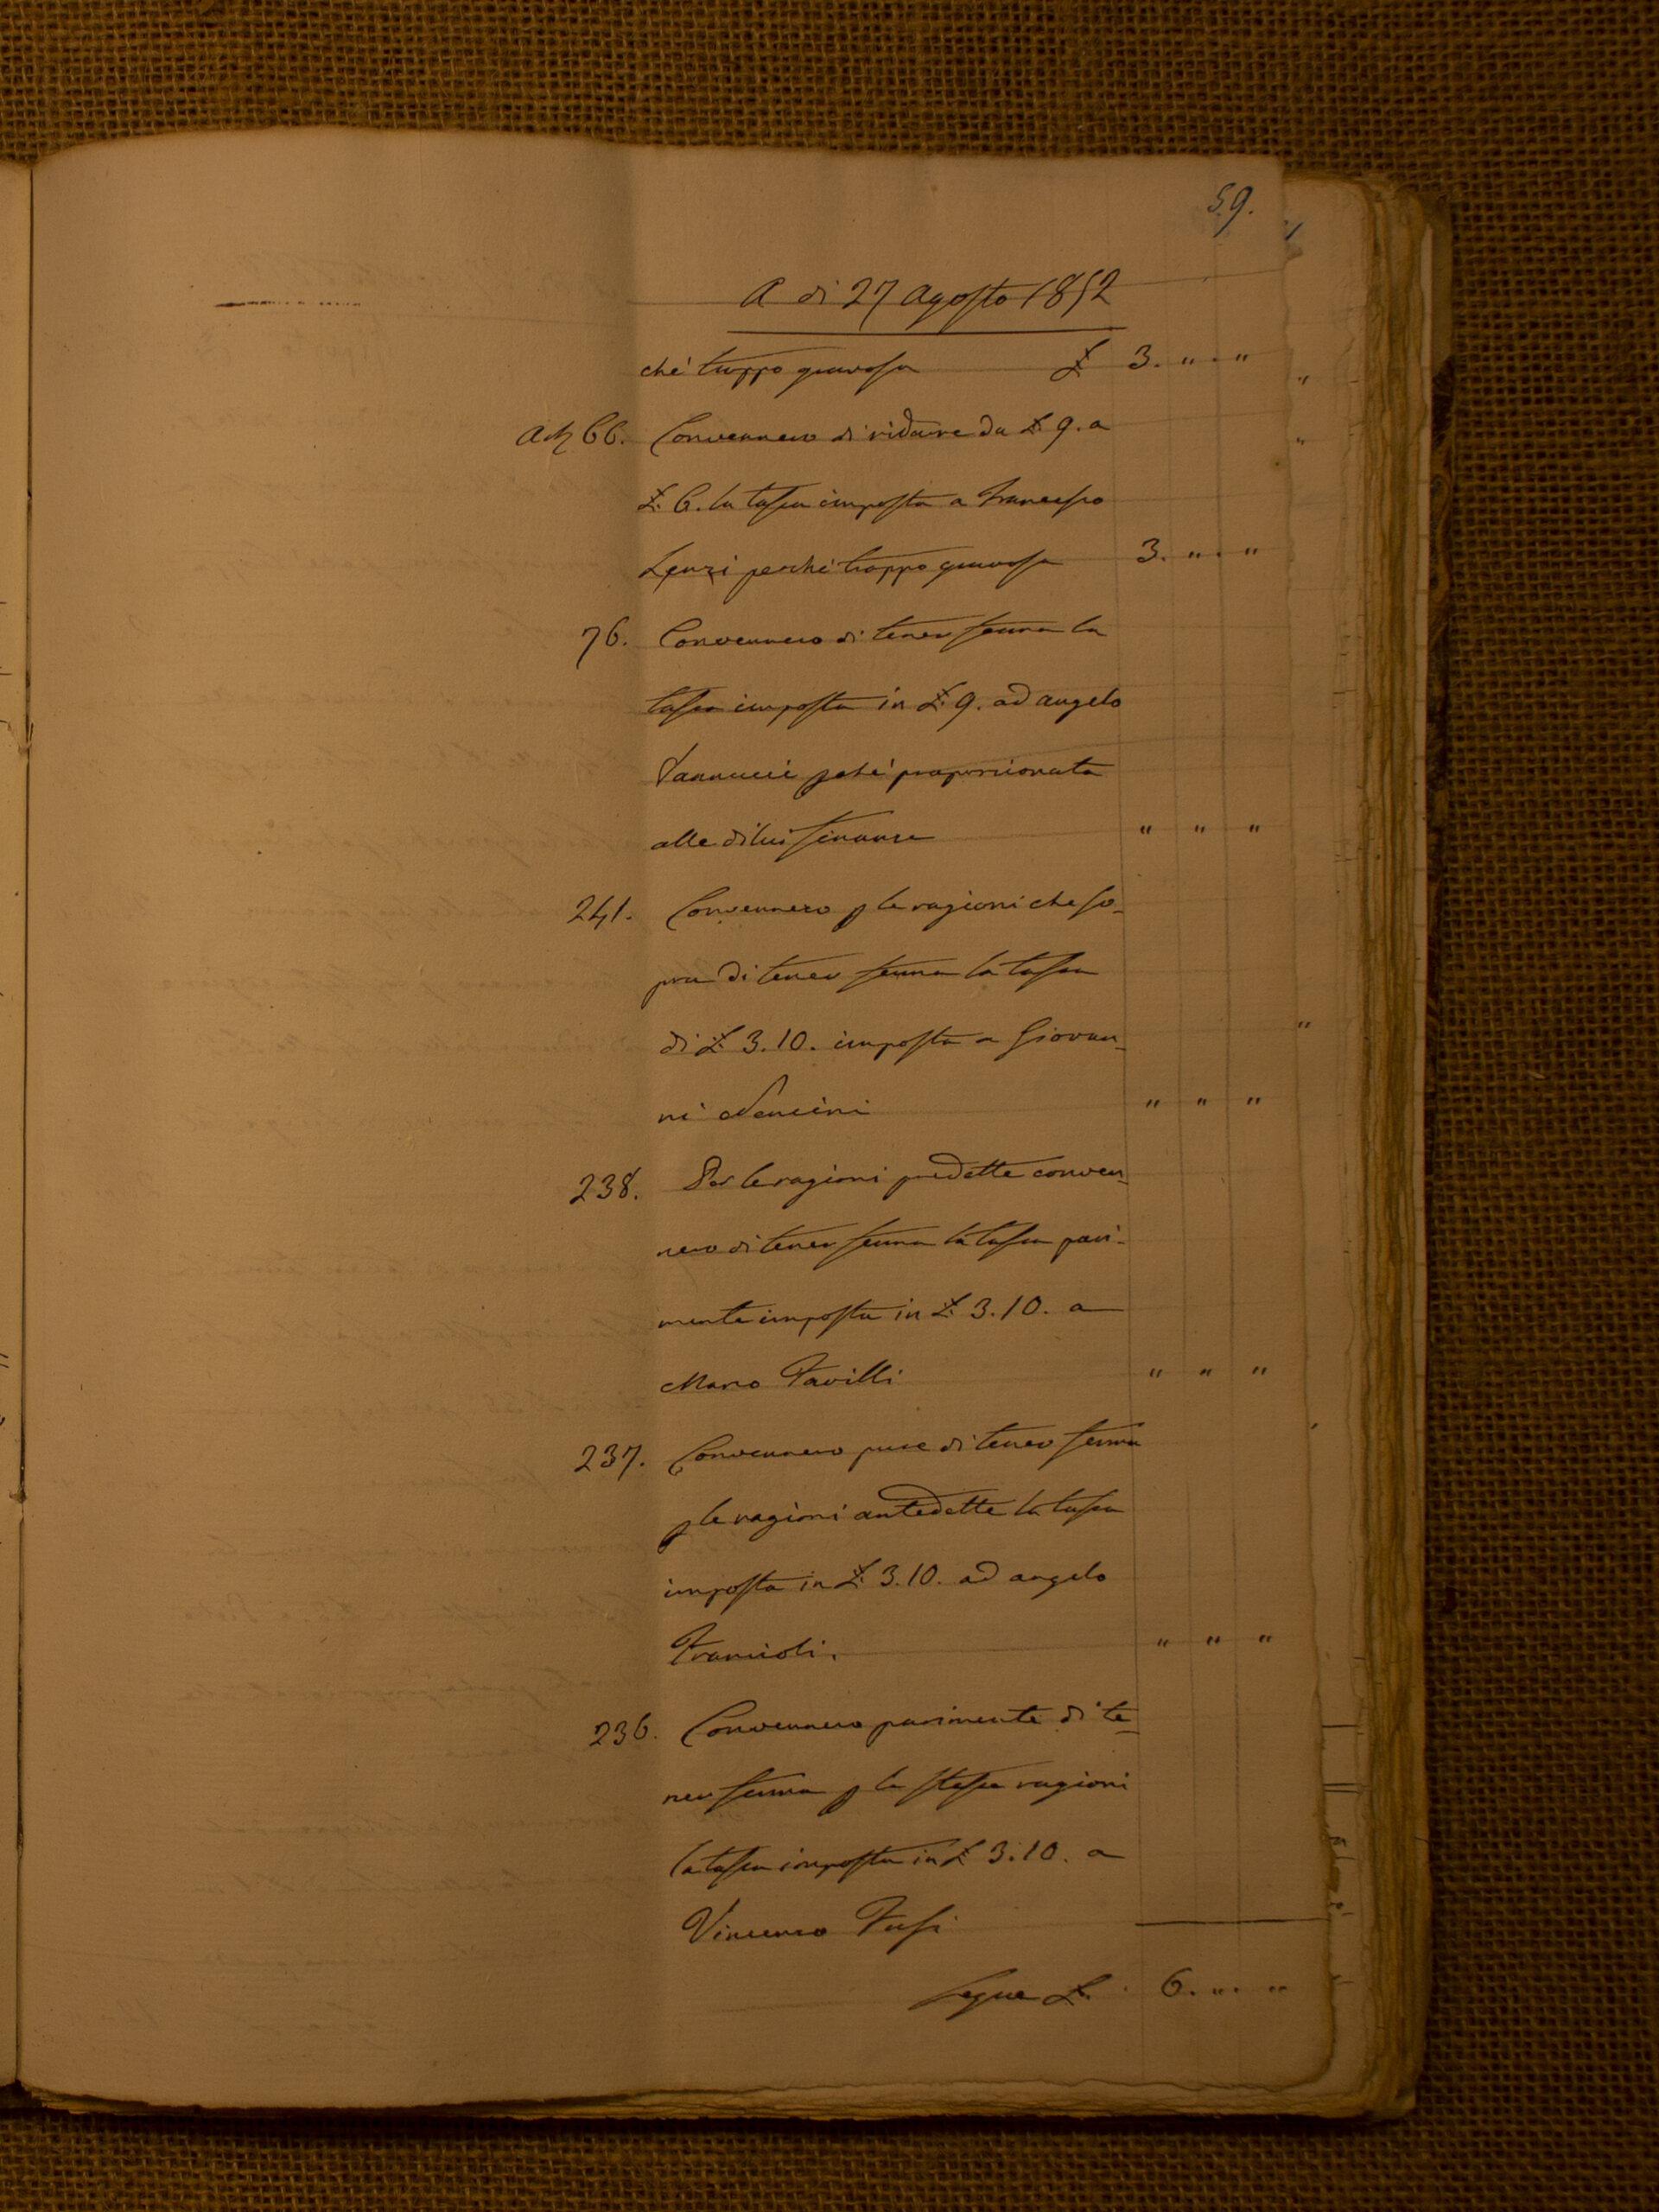 59.
A di 27 Agosto 1852
chè troppo gravosa £ 3. " . "
Art 66. Convennero di ridurre da £ 9. a
£. 6. la tassa imposta a Francesco
Lenzi perchè troppo gravosa 3. " . "
76. Convennero di tener ferma la
tassa imposta in £ 9. ad Angelo
Vannucci pchè proporzionata
alle di lui finanze " " "
241. Convennero p le ragioni che so-
pra di tener ferma la tassa
di £ 3.10. imposta a Giovan-
ni Nencini " " "
238. Per le ragioni predette conven-
nero di tener ferma la tassa pari-
mente imposta in £ 3.10. a
Marco Favilli " " "
237. Convennero pure di tener ferma
p le ragioni antedette la tassa
imposta in £. 3.10. ad Angelo
Francioli. " " "
236. Convennero parimente di te-
ner ferma p le stesse ragioni
la tassa imposta in £ 3.10. a
Vincenzo Fusi
Segue £. 6. " . "